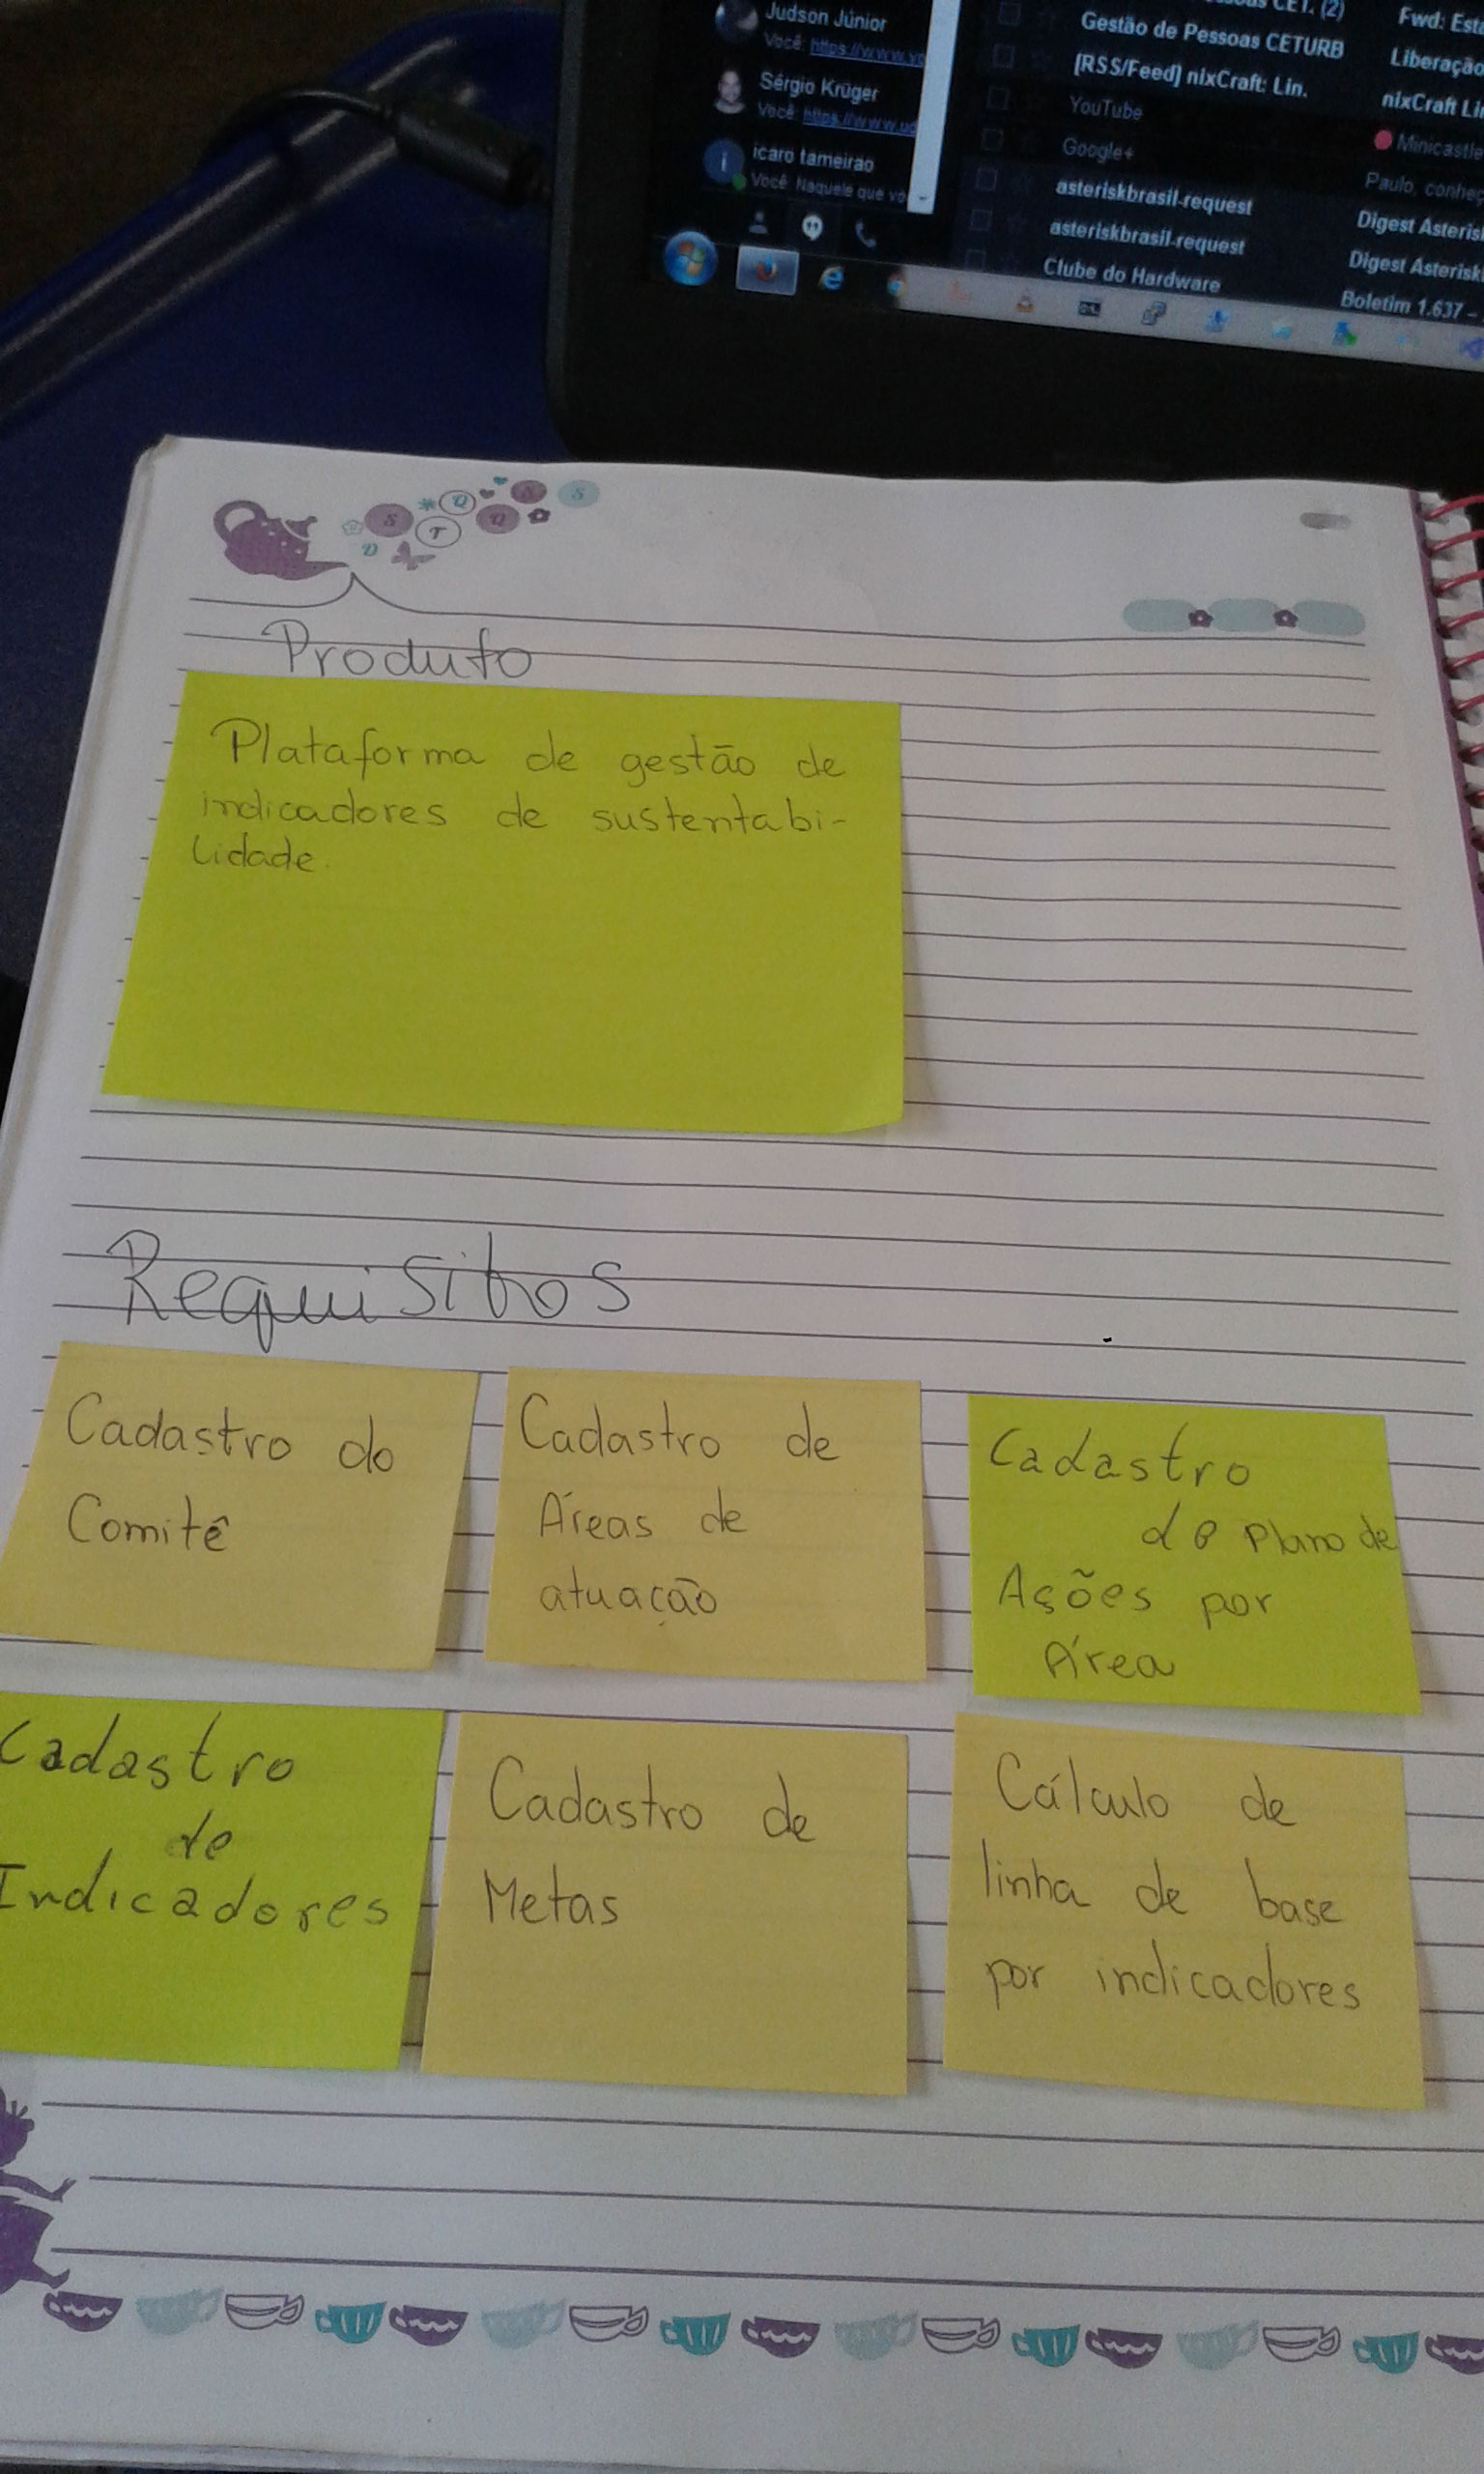 Judson Júnior
Você: https://www.yo
Sérgio Krüger
Você: https://www.ud
i
icaro tameirao
Você: Naquele que vo
Gestão de Pessoas CETURB
[RSS/Feed] nixCraft: Lin.
YouTube
Google+
asteriskbrasil-request
asteriskbrasil-request
Clube do Hardware
Fwd: Est
Liberação
nixCraft Li
Minicastle
Paulo, conhe
Digest Asteris
Digest Asterisk
Boletim 1.637 –
D S T Q Q S S
Produto
Plataforma de gestão de
indicadores de sustentabi-
lidade.
Requisitos
Cadastro do
Comitê
Cadastro de
Áreas de
atuação
Cadastro
do Plano de
Ações por
Área
Cadastro
de
Indicadores
Cadastro de
Metas
Cálculo de
linha de base
por indicadores